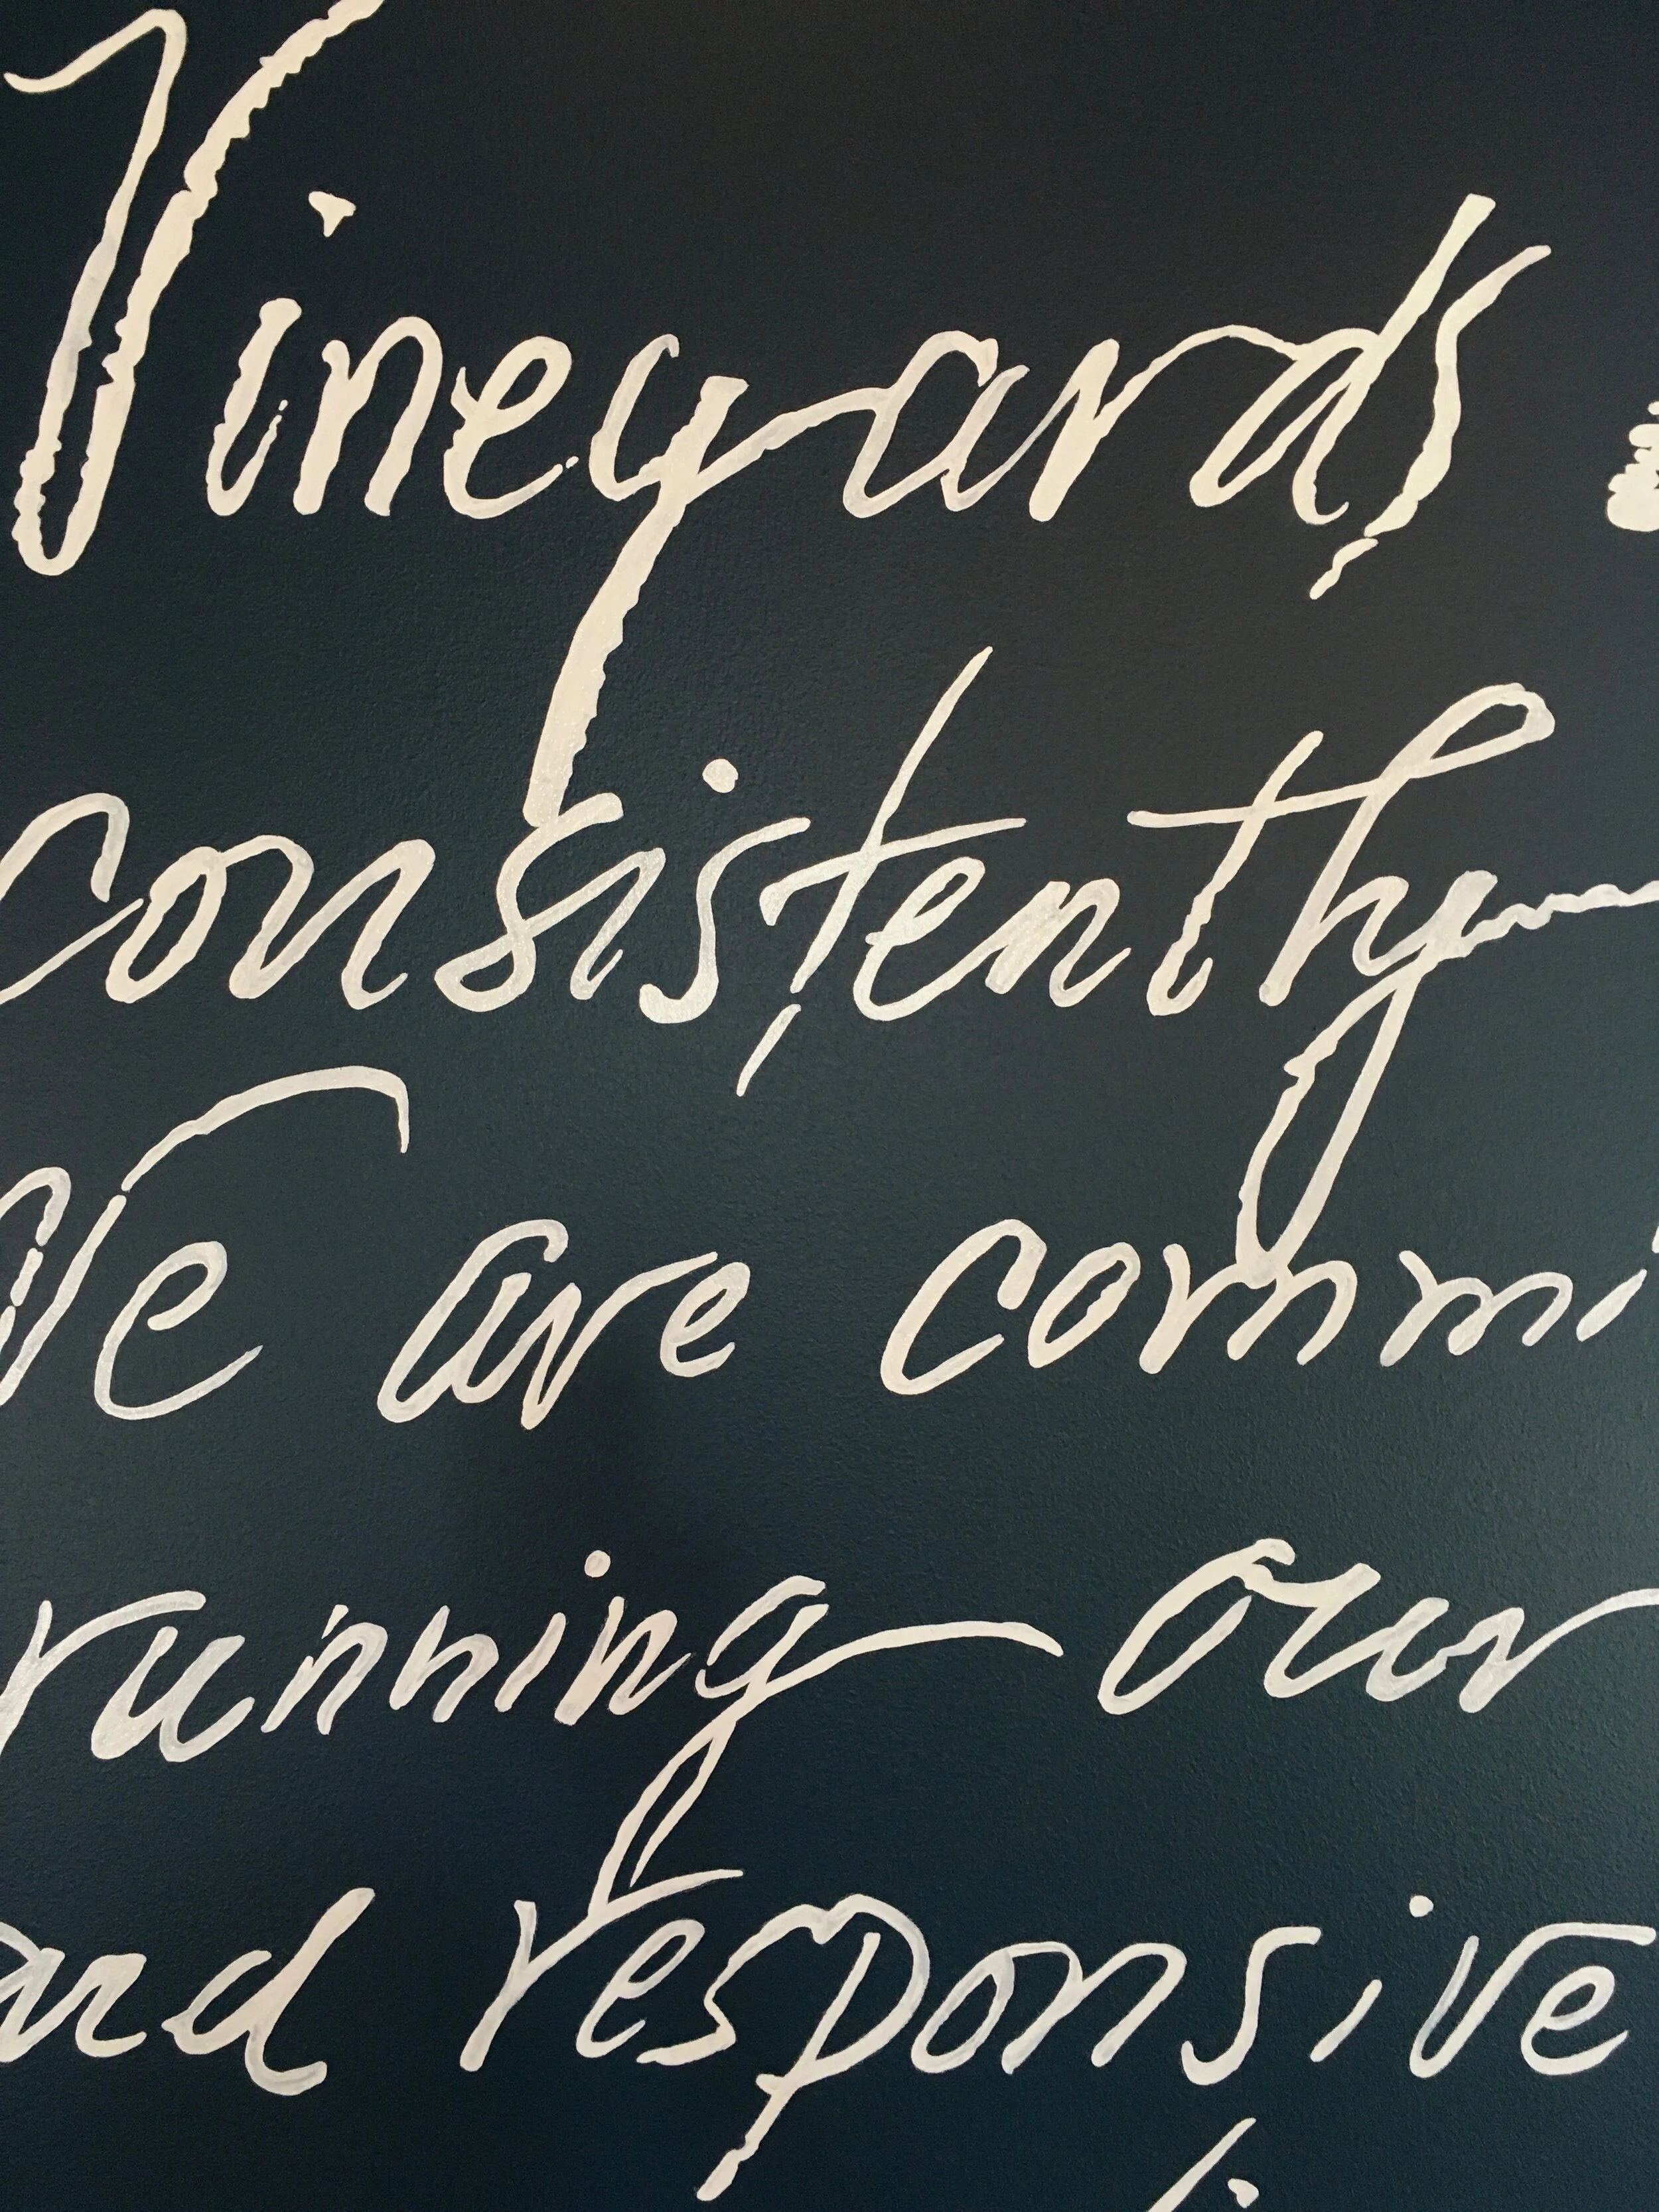 Vineyards
consistently
We are commi
running our
and responsive